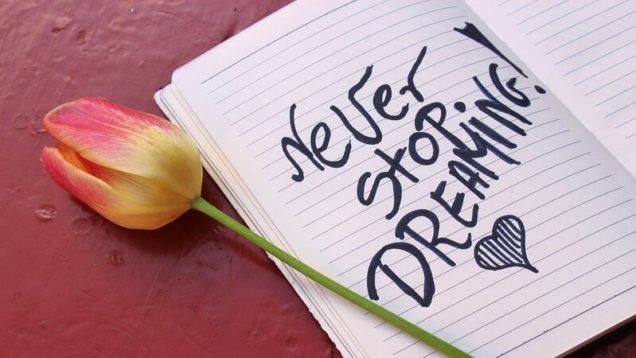 NeVer
STOP.
DREAMING!